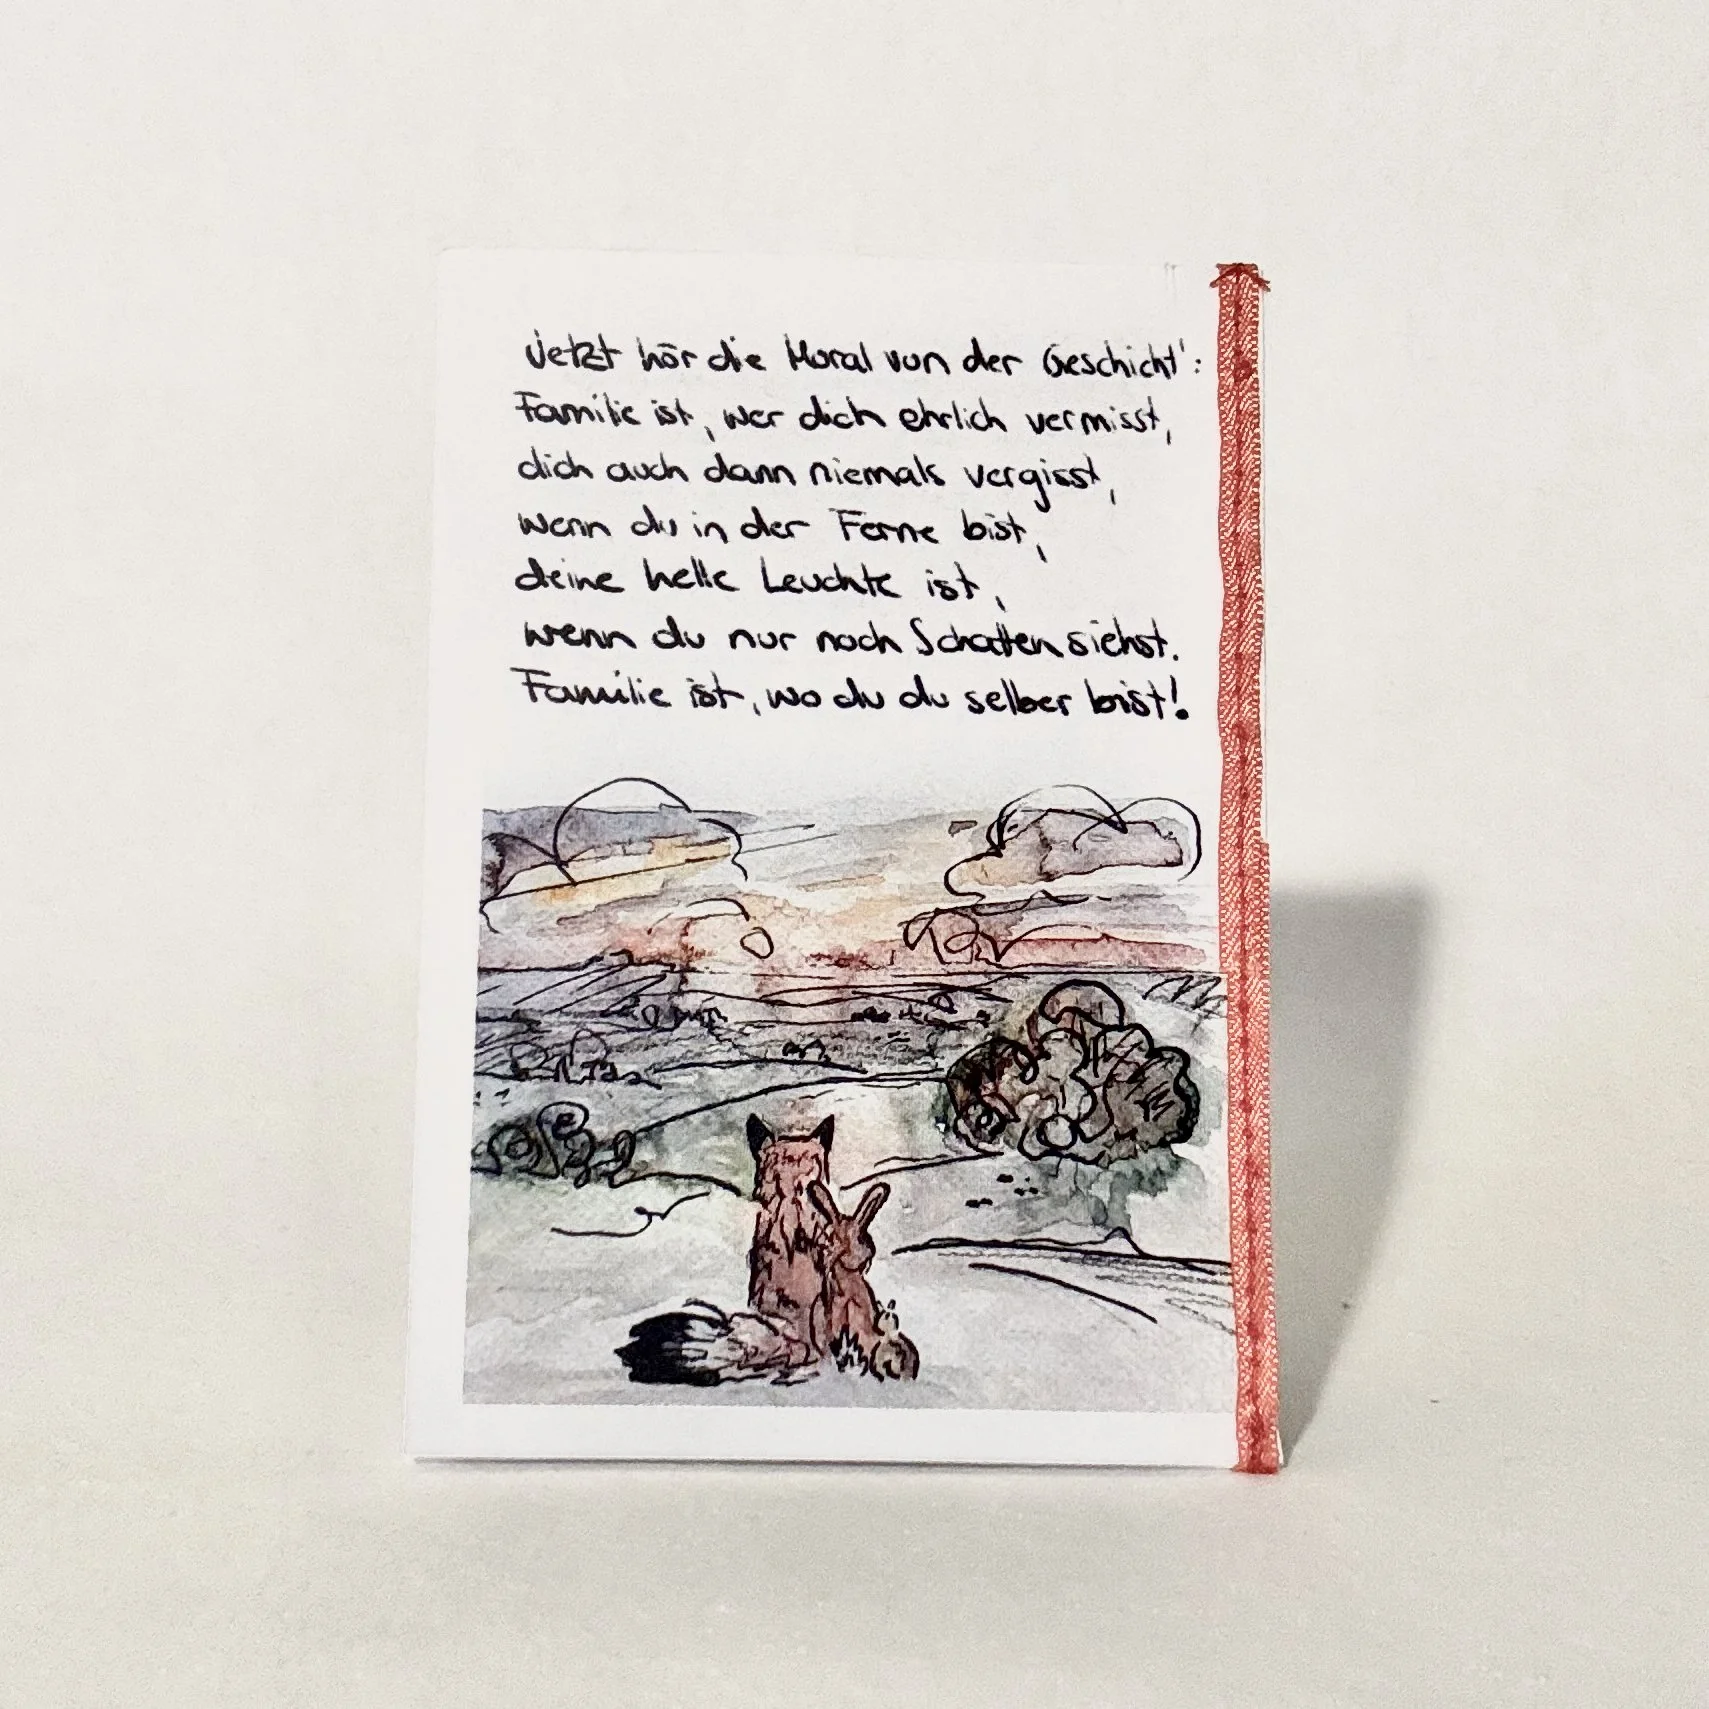 Jetzt hör die Moral von der Geschicht':
Familie ist, wer dich ehrlich vermisst,
dich auch dann niemals vergisst,
wenn du in der Ferne bist,
deine helle Leuchte ist,
wenn du nur noch Schatten siehst.
Familie ist, wo du du selber bist!